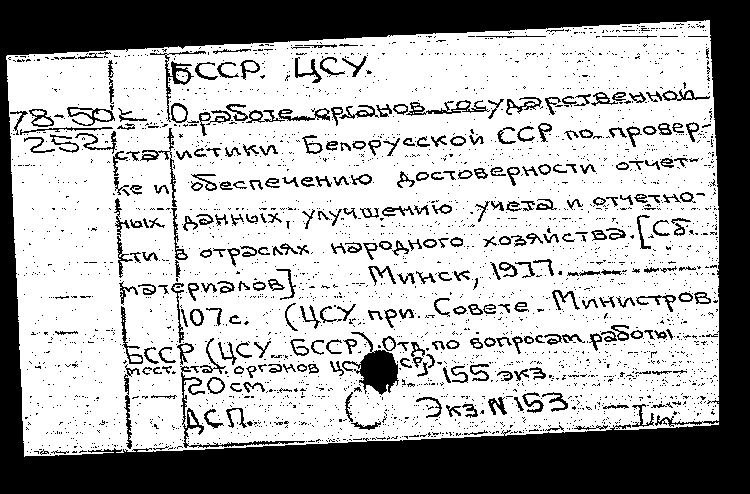 БССР. ЦСУ.
78-50к
252
О работе органов государственной
статистики Белорусской ССР по провер-
ке и обеспечению достоверности отчет-
ных данных, улучшению учета и отчетно-
сти в отраслях народного хозяйства. [Сб.
материалов] Минск, 1977.
107 с. (ЦСУ при Совете Министров
БССР (ЦСУ БССР). Отд. по вопросам работы
мест. стат. органов ЦСУ СР).
20 cm. 155 экз.
ДСП. Экз. N 153